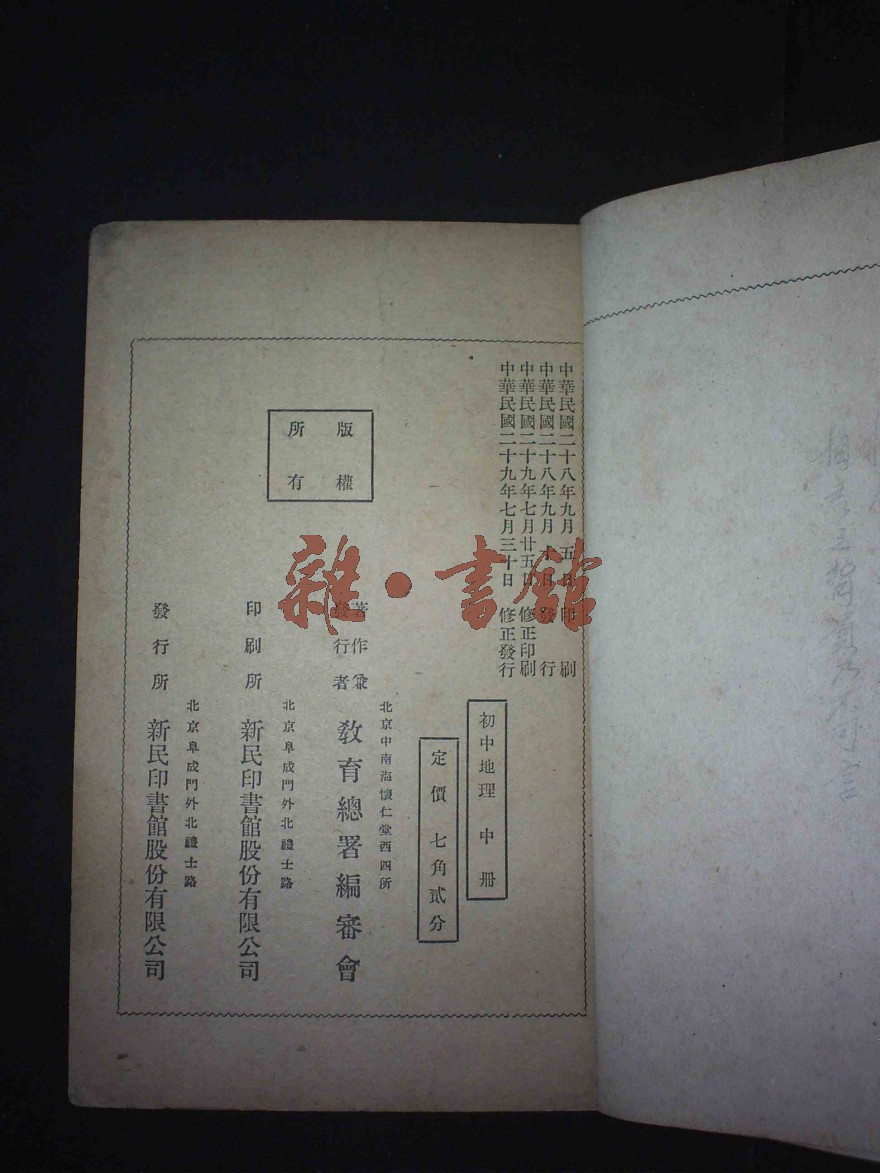 中華民國二十八年九月五日印刷
中華民國二十八年九月十日發行
中華民國二十九年七月廿五日修正印刷
中華民國二十九年七月三十日修正發行
初中地理 中册
定價 七角貳分
版權
所有
北京中南海懷仁堂西四所
著作兼
發行者
教育總署編審會
北京阜成門外北禮士路
印刷所 新民印書館股份有限公司
北京阜成門外北禮士路
發行所 新民印書館股份有限公司
雜·書館